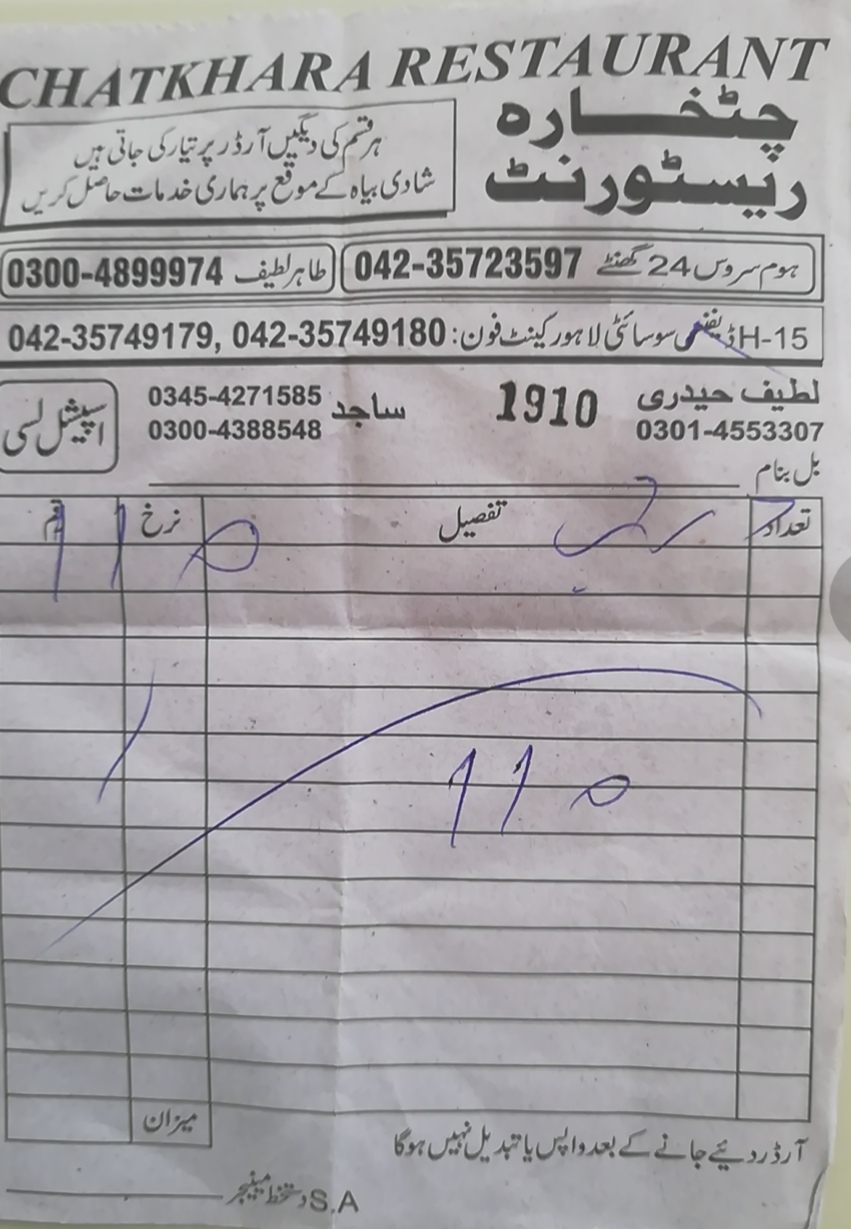 CHATKHARA RESTAURANT
چٹخارہ
ریسٹورنٹ
ہر قسم کی دیگیں آرڈر پر تیار کی جاتی ہیں
شادی بیاہ کے موقع پر ہماری خدمات حاصل کریں
ہوم سروس 24 گھنٹے 042-35723597
طاہر لطیف 0300-4899974
H-15 ڈیفنس سوسائٹی لاہور کینٹ فون: 042-35749179, 042-35749180
لطیف حیدری
0301-4553307
1910
ساجد
0345-4271585
0300-4388548
اسپیشل لسی
بل بنام
تعداد تفصیل نرخ رقم
110
میزان
آرڈر دئیے جانے کے بعد واپس یا تبدیل نہیں ہوگا
S.A دستخط مینیجر